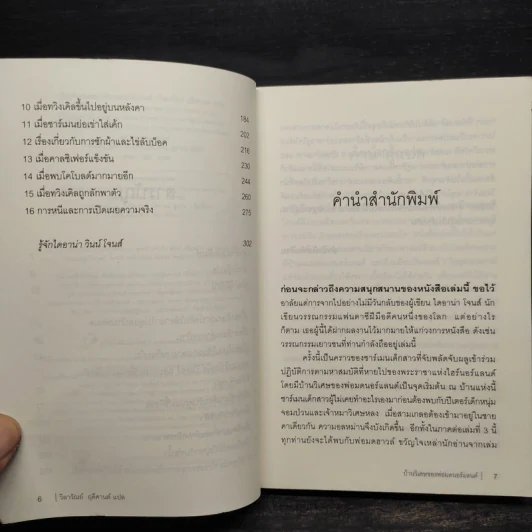 10 เมื่อทวิงเคิลขึ้นไปอยู่บนหลังคา 184
11 เมื่อชาร์เมนย่อเข่าใส่เค้ก 202
12 เรื่องเกี่ยวกับการซักผ้าและไข่ลับบ็อค 216
13 เมื่อคาลซิเฟอร์แข็งขัน 230
14 เมื่อพบโคโบลด์มากมายอีก 244
15 เมื่อทวิงเคิลถูกลักพาตัว 260
16 การหนีและการเปิดเผยความจริง 275
รู้จักไดอาน่า วินน์ โจนส์ 302
6 | จิลาวัณย์ ฤดีศานต์ แปล
คำนำสำนักพิมพ์
ก่อนจะกล่าวถึงความสนุกสนานของหนังสือเล่มนี้ ขอไว้
อาลัยแด่การจากไปอย่างไม่มีวันกลับของผู้เขียน ไดอาน่า โจนส์ นัก
เขียนวรรณกรรมแฟนตาซีฝีมือดีคนหนึ่งของโลก แต่อย่างไร
ก็ตาม เธอผู้นี้ได้ฝากผลงานไว้มากมายให้แก่วงการหนังสือ ดังเช่น
วรรณกรรมเยาวชนที่ท่านกำลังถืออยู่เล่มนี้
ครั้งนี้เป็นคราวของชาร์เมนเด็กสาวที่จับพลัดจับผลูเข้าร่วม
ปฏิบัติการตามหาสมบัติที่หายไปของพระราชาแห่งไฮร์นอร์แลนด์
โดยมีบ้านวิเศษของพ่อมดนอร์แลนด์เป็นจุดเริ่มต้น ณ บ้านแห่งนี้
ชาร์เมนเด็กสาวผู้ไม่เคยทำอะไรเองมาก่อนต้องพบกับปีเตอร์เด็กหนุ่ม
จอมป่วนและเจ้าหมาวิเศษหลง เมื่อสามเกลอต้องเข้ามาอยู่ในชาย
คาเดียวกัน ความอลหม่านจึงบังเกิดขึ้น อีกทั้งในภาคต่อเล่มที่ 3 นี้
ทุกท่านยังจะได้พบกับพ่อมดฮาวล์ ขวัญใจเหล่านักอ่านจากเล่ม
บ้านวิเศษของพ่อมดนอร์แลนด์ | 7